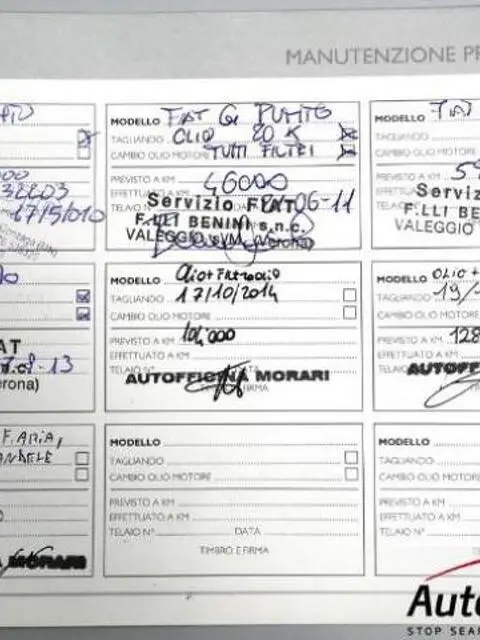 MANUTENZIONE PR
MODELLO FIAT G. PUNTO
TAGLIANDO OLIO 20 K
CAMBIO OLIO MOTORE TUTTI FILTRI
PREVISTO A KM 46000
EFFETTUATO A KM
TELAIO N° 06-11
Servizio FIAT
F.LLI BENINI s.n.c.
VALEGGIO s/M. (Verona)
MODELLO FIAT
TAGLIANDO
CAMBIO OLIO MOTORE
PREVISTO A KM
EFFETTUA
TELAIO
Serviz
F.LLI BE
VALEGGIO
32203
17/5/010
AT
-13
erona)
MODELLO Olio + Filtro olio
TAGLIANDO 17/10/2014
CAMBIO OLIO MOTORE
PREVISTO A KM 104'000
EFFETTUATO A KM
TELAIO N° DATA
AUTOFFICINA MORARI
TIMBRO E FIRMA
MODELLO OLIO +
TAGLIANDO 19/
CAMBIO OLIO MOTORE
PREVISTO A KM 128
EFFETTUATO A KM
TELAIO N°
AUTOFF
TIM
F. ARIA,
MORARI
MODELLO
TAGLIANDO
CAMBIO OLIO MOTORE
PREVISTO A KM
EFFETTUATO A KM
TELAIO N° DATA
TIMBRO E FIRMA
MODELLO
TAGLIANDO
CAMBIO OLIO MOTORE
PREVISTO A KM
EFFETTUATO A KM
TELAIO N°
Auto
STOP SEAR